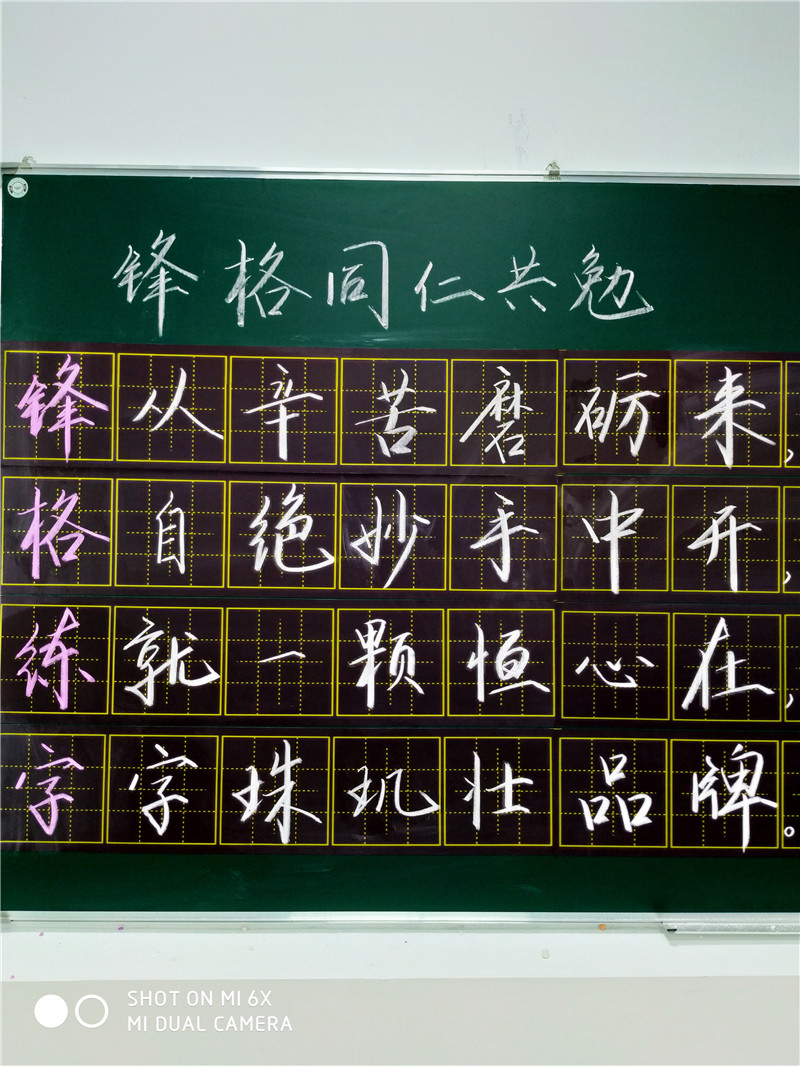 锋格同仁共勉
锋从辛苦磨砺来,
格自绝妙手中开,
练就一颗恒心在,
字字珠玑壮品牌。
SHOT ON MI 6X
MI DUAL CAMERA